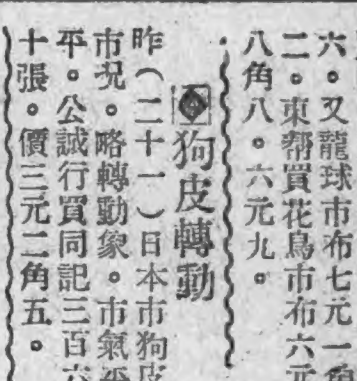 六。又龍球市布七元一角
二。東幫買花鳥市布六元
八角八。六元九。
狗皮轉動
昨(二十一)日本市狗皮
市况。略轉動象。市氣平
平。公誠行買同記三百六
十張。價三元二角五。